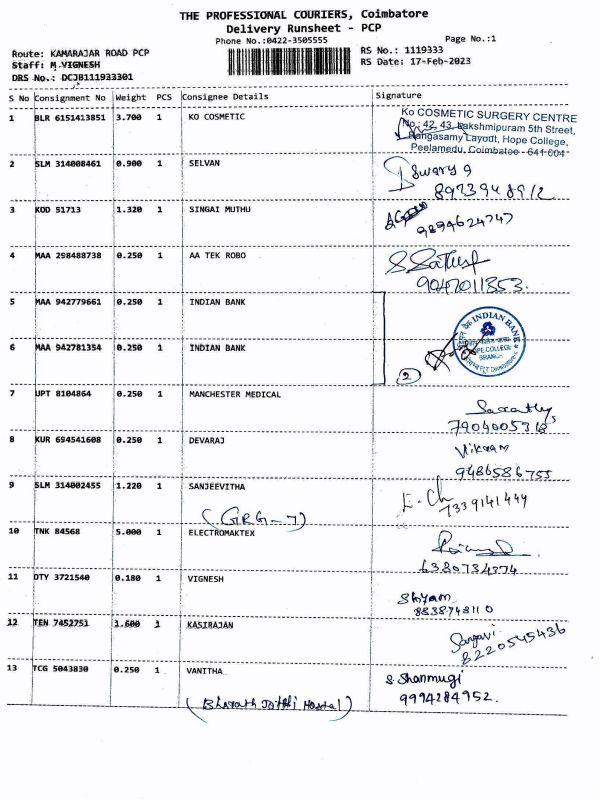 THE PROFESSIONAL COURIERS, Coimbatore
Delivery Runsheet - PCP
Phone No.:0422-3505555
Page No.:1
Route: KAMARAJAR ROAD PCP
RS No.: 1119333
Staff: M VIGNESH
RS Date: 17-Feb-2023
DRS No.: DCJB111933301
S No Consignment No Weight PCS Consignee Details Signature
1 BLR 6151413851 3.700 1 KO COSMETIC
Ko COSMETIC SURGERY CENTRE
No: 42, 43, Lakshmipuram 5th Street,
Rangasamy Layodt, Hope College,
Peelamedu, Coimbatoe - 641 004
2 SLM 314008461 0.900 1 SELVAN
3 KOD 51713 1.320 1 SINGAI MUTHU
9894624747
4 MAA 298488738 0.250 1 AA TEK ROBO
9047011353.
5 MAA 942779661 0.250 1 INDIAN BANK
INDIAN BANK
HOPE COLLEGE
BRANCH
6 MAA 942781354 0.250 1 INDIAN BANK
2
7 UPT 8104864 0.250 1 MANCHESTER MEDICAL
8 KUR 694541608 0.250 1 DEVARAJ
Vikram
9486586755
9 SLM 314002455 1.220 1 SANJEEVITHA
7339141449
(GRG-7)
10 TNK 84568 5.000 1 ELECTROMAKTEX
6380734574
11 DTY 3721540 0.180 1 VIGNESH
Shyam
8838748110
12 TEN 7452751 1.600 1 KASIRAJAN
Sangavi
8220545436
13 TCG 5043830 0.250 1 VANITHA
S. Shanmugi
9994284952.
(Bharath Jothi Hostal)